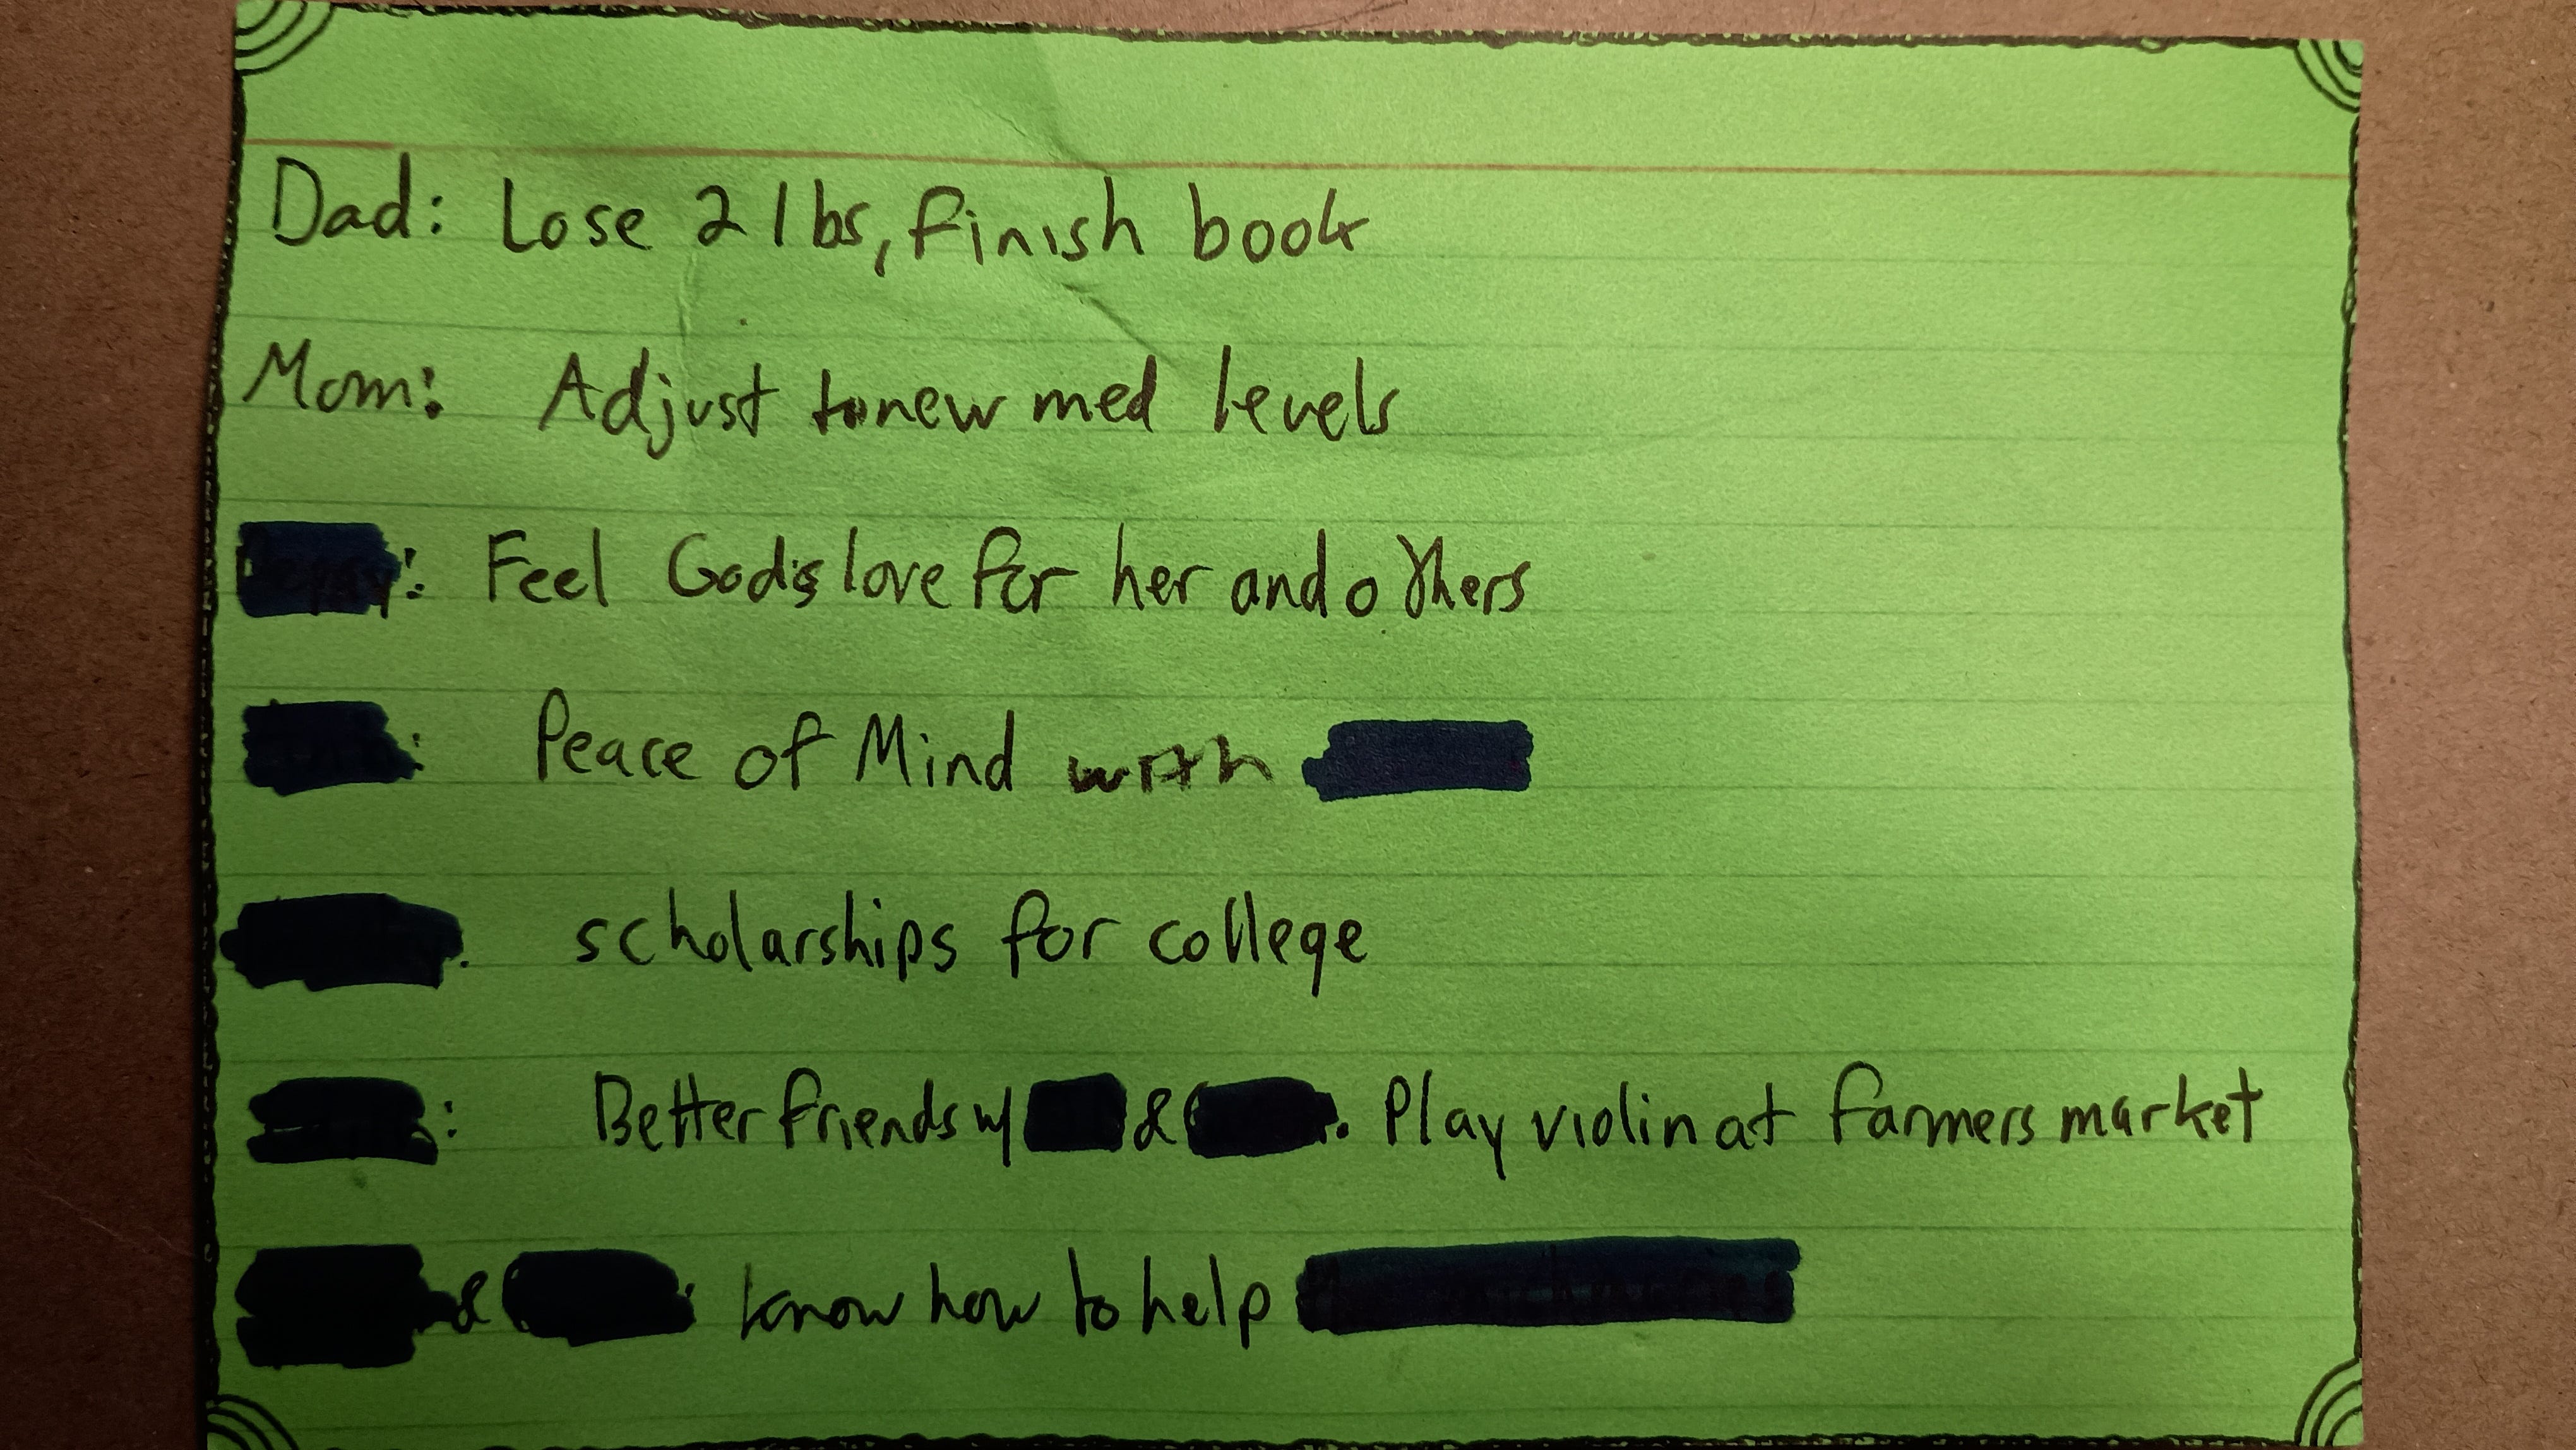 Dad: Lose 2 lbs, finish book
Mom: Adjust to new med levels
: Feel God's love for her and others
: Peace of Mind with
scholarships for college
: Better friends w/ & . Play violin at farmers market
& : know how to help